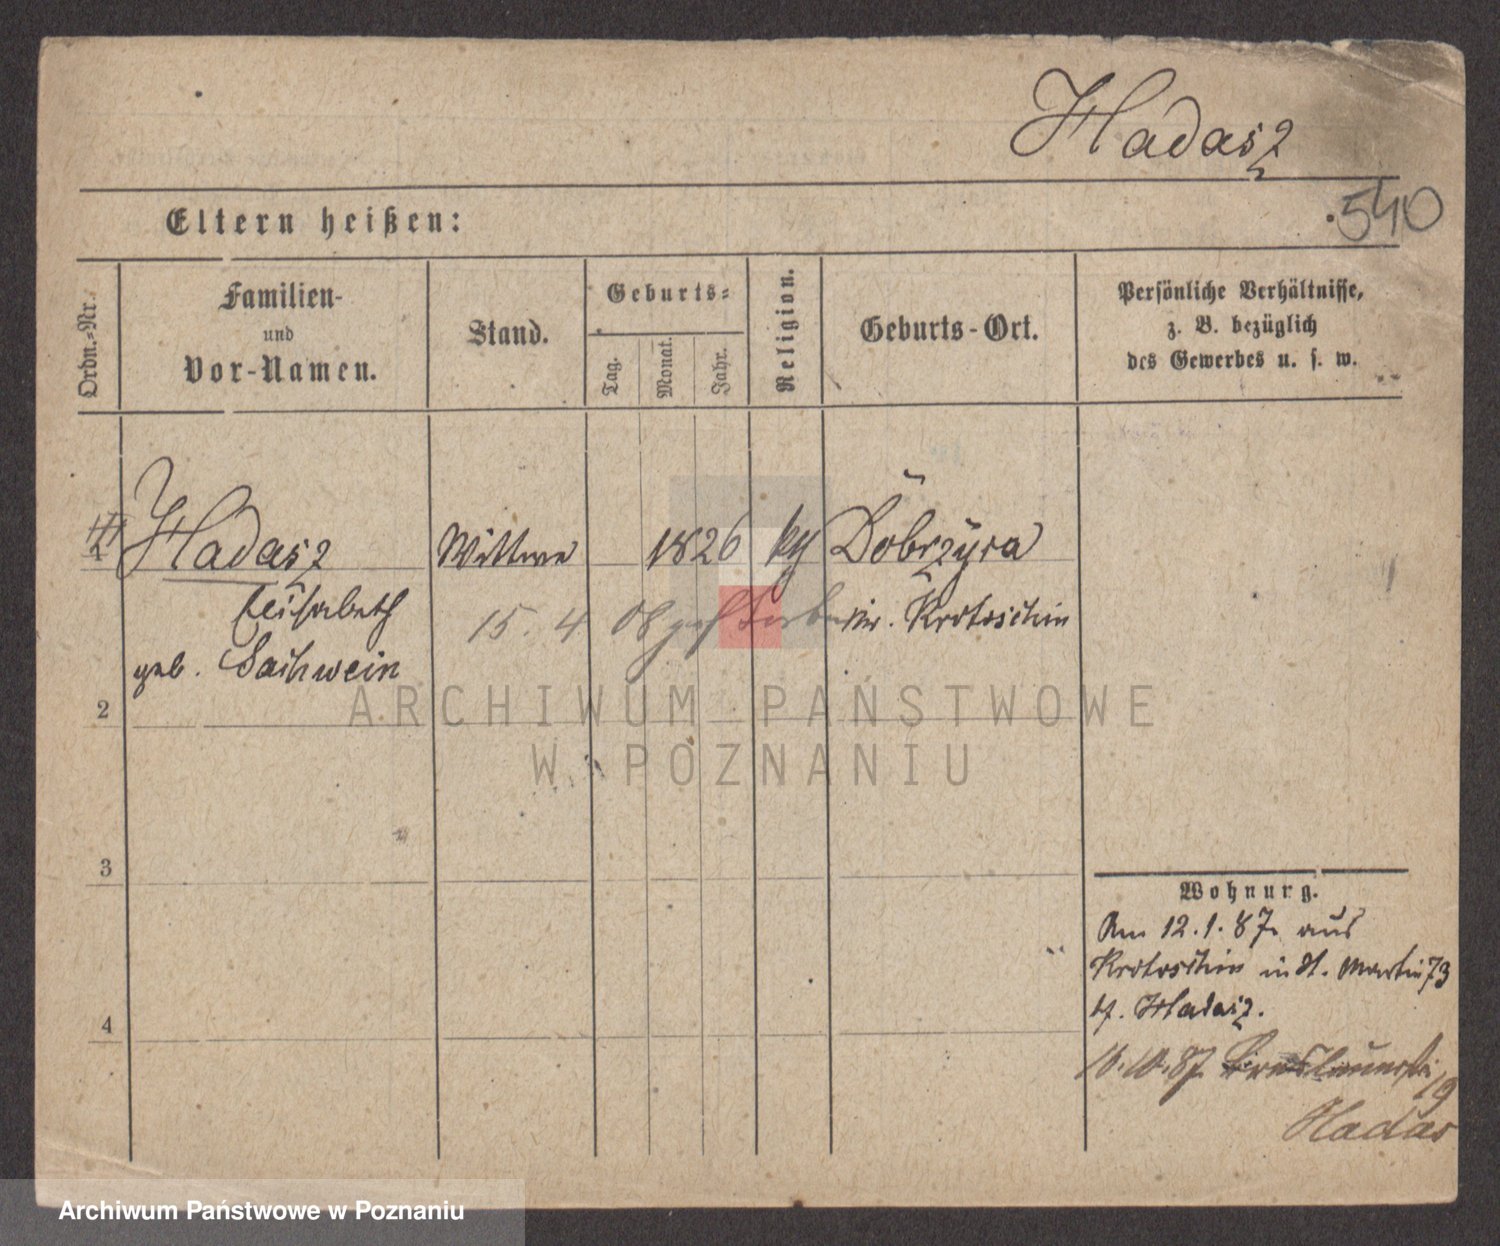 Hadasz
Eltern heißen:
540
Ordn.-Nr.
Familien-
und
Vor-Namen.
Stand.
Geburts-
Tag.
Monat.
Jahr.
Religion.
Geburts-Ort.
Persönliche Verhältnisse,
z. B. bezüglich
des Gewerbes u. s. w.
1 Hadasz Wittwe 1826 Dobrzyca
Elisabeth 15. 4 08 gestorben Kr. Krotoschin
geb. Sachwein
2
ARCHIWUM PAŃSTWOWE
W POZNANIU
3
Wohnung.
Am 12.1.87. aus
Krotoschin in St. Martin 73
b. Hadasz.
4
10.87. Breslauerstr
19
Hadas
Archiwum Państwowe w Poznaniu